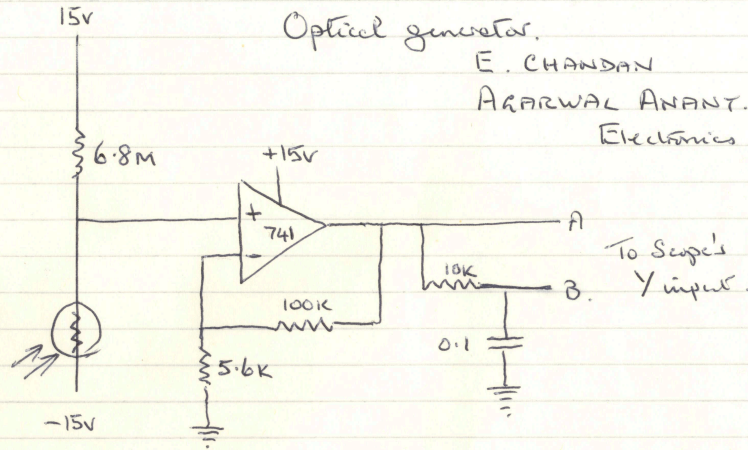 15v
Optical generator.
E. CHANDAN
AGARWAL ANANT.
Electronics
6.8M
+15v
+
741
-
A
To Scope's
Y input.
10K
B.
100K
0.1
5.6K
-15v